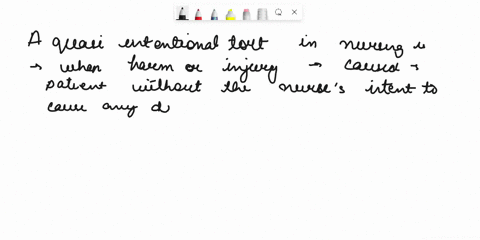 A quasi intentional tort in nursing is
→ when harm or injury → caused →
patient without the nurse's intent to
cause any d